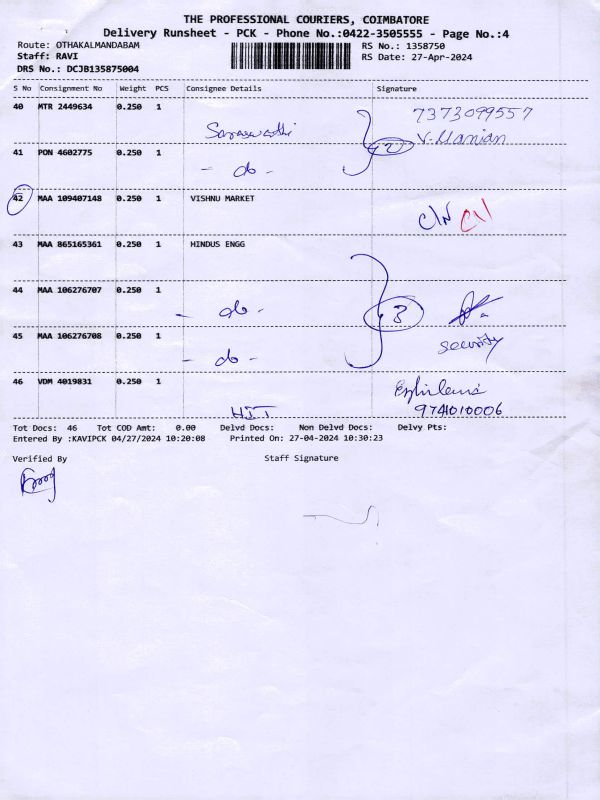 THE PROFESSIONAL COURIERS, COIMBATORE
Delivery Runsheet - PCK - Phone No.:0422-3505555 - Page No.:4
Route: OTHAKALMANDABAM RS No.: 1358750
Staff: RAVI RS Date: 27-Apr-2024
DRS No.: DCJB135875004
S No Consignment No Weight PCS Consignee Details Signature
40 MTR 2449634 0.250 1 7373099557
Saraswathi 2 V. Manian
41 PON 4602775 0.250 1
- do -
42 MAA 109407148 0.250 1 VISHNU MARKET
C/N
43 MAA 865165361 0.250 1 HINDUS ENGG
44 MAA 106276707 0.250 1
- do - 3
45 MAA 106276708 0.250 1 security
- do -
46 VDM 4019831 0.250 1
HIT 9741010006
Tot Docs: 46 Tot COD Amt: 0.00 Delvd Docs: Non Delvd Docs: Delvy Pts:
Entered By :KAVIPCK 04/27/2024 10:20:08 Printed On: 27-04-2024 10:30:23
Verified By Staff Signature